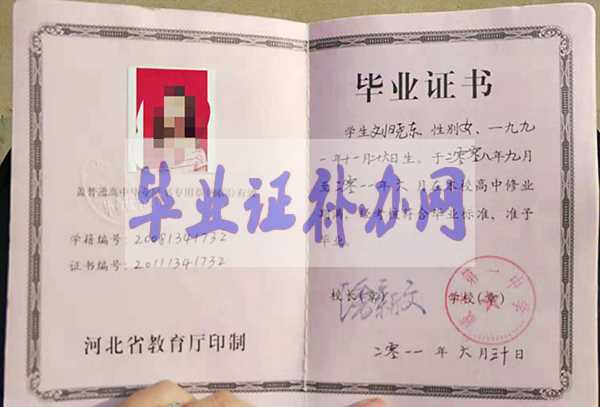 盖普通高中毕业证书专用章(钢印)有效
学籍编号: 20081341732
证书编号: 20111341732
河北省教育厅印制
毕业证书
学生 东、性别女、一九九
一年十一月二十六日生、于二零零八年九月
至二零一一年六月在本校高中修业
期满,经考核符合毕业标准,准予
毕业。
校长(章)
学校(章)
第一中学
二零一一年六月三十日
毕业证补办网